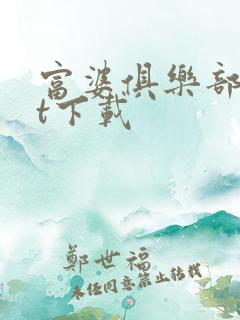 富婆俱樂部
t下載
鄭世福
未经同意禁止转载